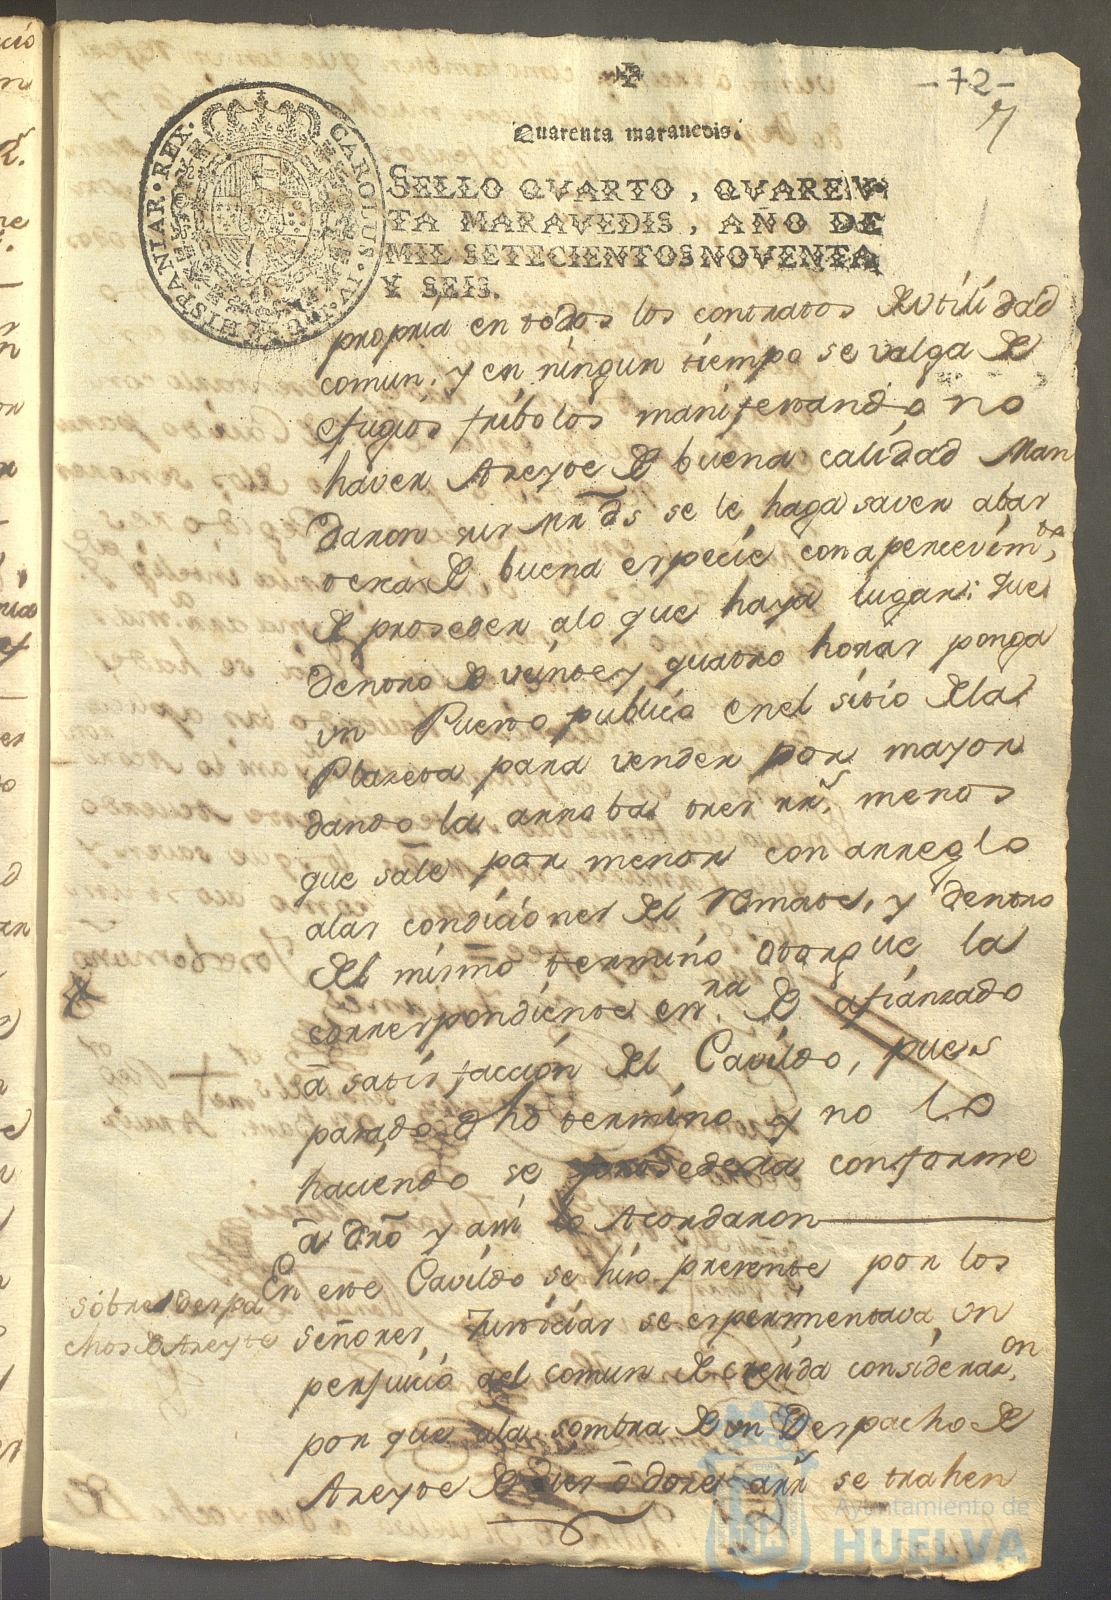 -72-
Quarenta maravedis.
SELLO QVARTO, QVAREN-
TA MARAVEDIS, AÑO DE
MIL SETECIENTOS NOVENTA
Y SEIS.
CAROLUS·IV·D·G·HISPANIAR·REX·
propria en todos los contratos de utilidad
comun; y en ningun tiempo se valga de
efugios fribolos manifestando no
haver Azeyte de buena calidad Man
daron sus mrds se le haga saver abas
tezca de buena especie con apercevimto
de proseder alo que haya lugar: que
dentro de veinte y quatro horas ponga
un Puesto publico en el sitio dela
Plazeta para vender por mayor
dando la arroba tres rrs menos
que sale por menor con arreglo
alas condiciones del Remate, y dentro
del mismo termino otorgue la
correspondiente esra de afianzado
a satisfaccion del Cavildo, pues
pasado dho termino y no lo
haciendo se prosederia conforme
a dro y asi lo Acordaron
En este Cavildo se hizo presente por los
sobre despa
chos de Azeyte
señores Justicias se esperimentava un
perjuicio del comun de crecida consideraon
por que ala sombra de un Despacho de
Azeyte de dies o dose arrs se trahen
Ayuntamiento de
HUELVA